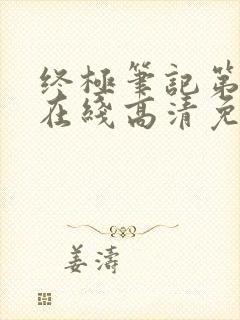 终極筆記第
在綫高清免
姜濤